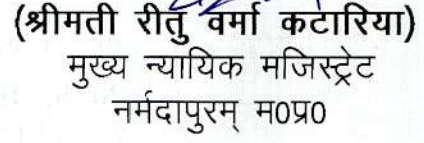 (श्रीमती रीतु वर्मा कटारिया)
मुख्य न्यायिक मजिस्ट्रेट
नर्मदापुरम् म0प्र0